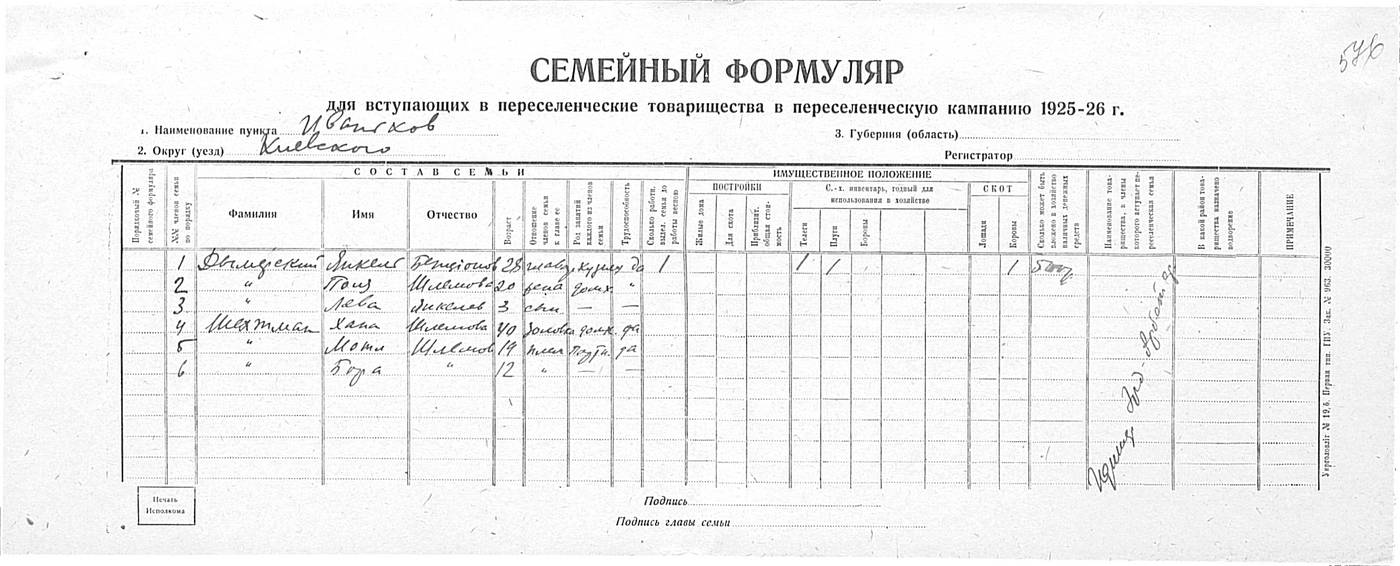 576
СЕМЕЙНЫЙ ФОРМУЛЯР
для вступающих в переселенческие товарищества в переселенческую кампанию 1925-26 г.
1. Наименование пункта Иванков
3. Губерния (область)
2. Округ (уезд) Киевского
Регистратор
СОСТАВ СЕМЬИ
ИМУЩЕСТВЕННОЕ ПОЛОЖЕНИЕ
Порядковый № семейного формуляра
№№ членов семьи по порядку
Фамилия
Имя
Отчество
Возраст
Отношение членов семьи к главе ее
Род занятий каждого из членов семьи
Трудоспособность
Сколько работн. выдел. семья до работы весною
ПОСТРОЙКИ
Жилые дома
Для скота
Приблизит. общая стоимость
С.-х. инвентарь, годный для использования в хозяйстве
Телеги
Плуги
Бороны
СКОТ
Лошади
Коровы
Сколько может быть вложено в хозяйство наличных денежных средств
Наименование товарищества, в члены которого вступает переселенческая семья
В какой район товарищества назначено водворение
ПРИМЕЧАНИЕ
1 Дымерский Янкель Бенционов 28 глава кузнец да 1 1 1 1 500 р
2 " Поля Шлемова 20 жена домх. "
3 " Лева Янкелев 3 сын — —
4 Шехтман Хана Шлемова 40 золовка домх. да
5 " Мотл Шлемов 19 плем да
6 " Бора " 12 " — —
Печать Исполкома
Подпись
Подпись главы семьи
Укрголовліт № 19,6. Первая тип. ГИУ Зак. № 963 30000